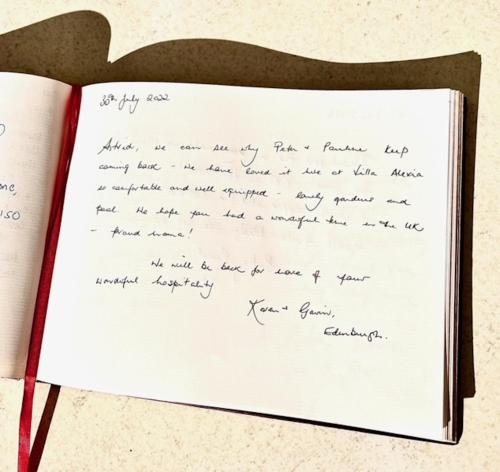 30th July 2022
Astrid, we can see why Peter + Pauline keep
coming back - We have loved it here at Villa Alexia
so comfortable and well equipped - lovely gardens and
pool. We hope you had a wonderful time in the UK
- proud mama!
We will be back for more of your
wonderful hospitality
Karen + Gavin,
Edinburgh.
me,
150